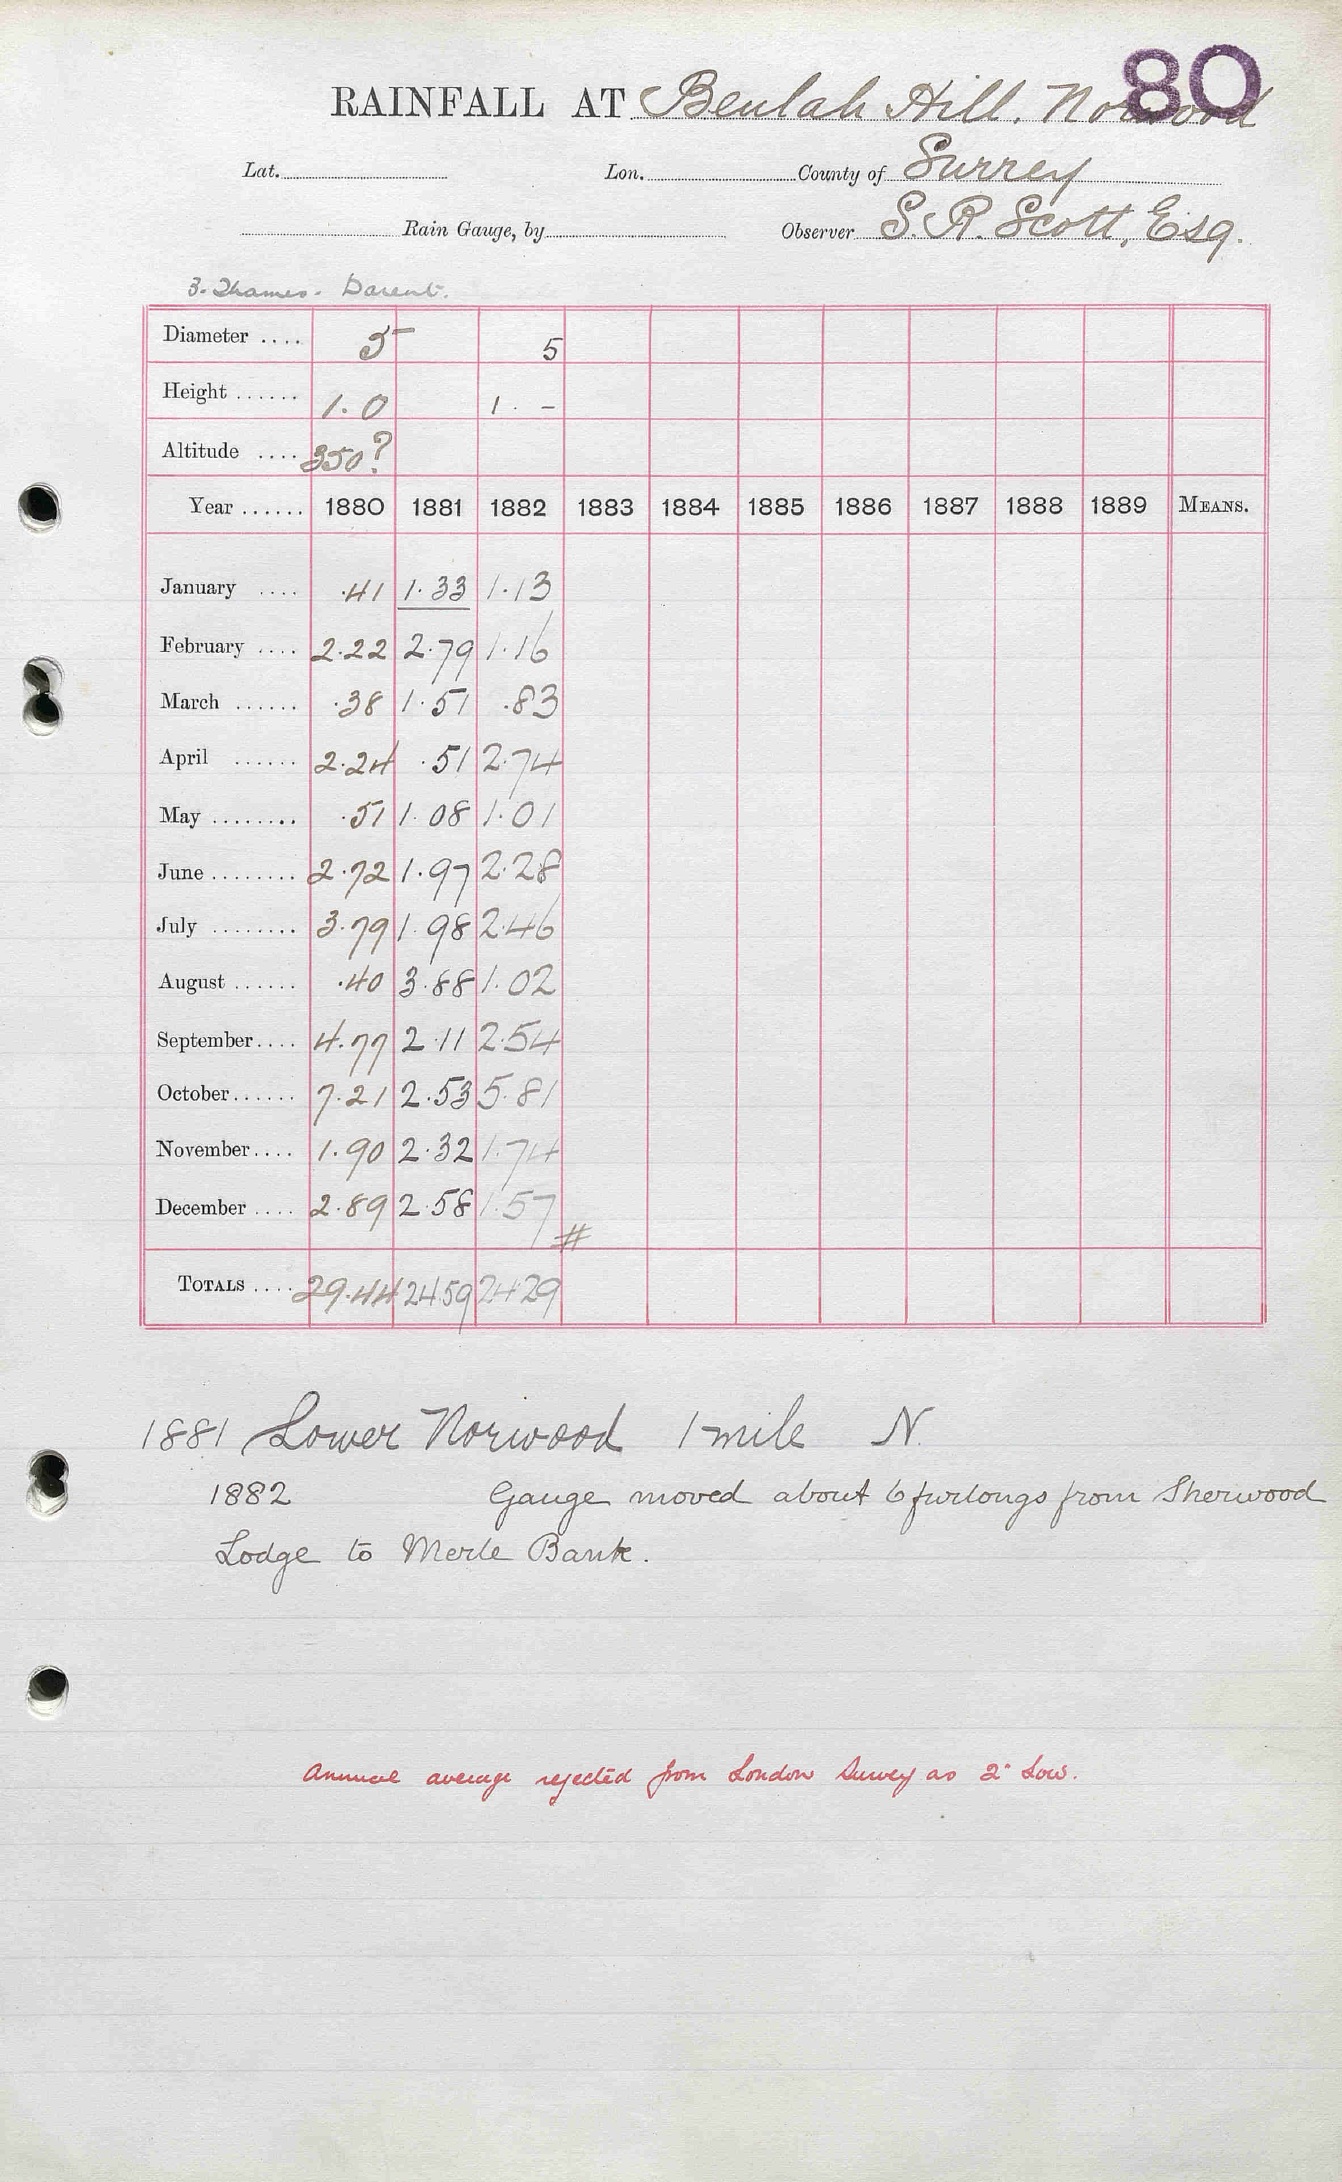 80
RAINFALL AT Beulah Hill. Norwood
Lat. Lon. County of Surrey
Rain Gauge, by Observer S. R. Scott, Esq.
3. Thames. Darent.
Diameter .... 5 5
Height ...... 1.0 1. -
Altitude .... 350?
Year ...... 1880 1881 1882 1883 1884 1885 1886 1887 1888 1889 MEANS.
January .... .41 1.33 1.13
February .... 2.22 2.79 1.16
March ...... .38 1.51 .83
April ...... 2.24 .51 2.74
May ........ .51 1.08 1.01
June ........ 2.72 1.97 2.28
July ........ 3.79 1.98 2.46
August ...... .40 3.88 1.02
September.... 4.77 2.11 2.54
October...... 7.21 2.53 5.81
November.... 1.90 2.32 1.74
December .... 2.89 2.58 1.57 #
TOTALS .... 29.44 24.59 24.29
1881 Lower Norwood 1 mile N.
1882 Gauge moved about 6 furlongs from Sherwood
Lodge to Merle Bank.
Annual average rejected from London Survey as 2" low.